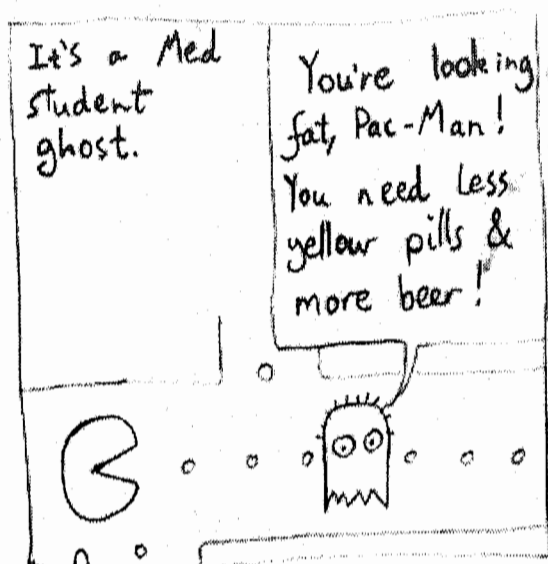 It's a Med
student
ghost.
You're looking
fat, Pac-Man!
You need less
yellow pills &
more beer!